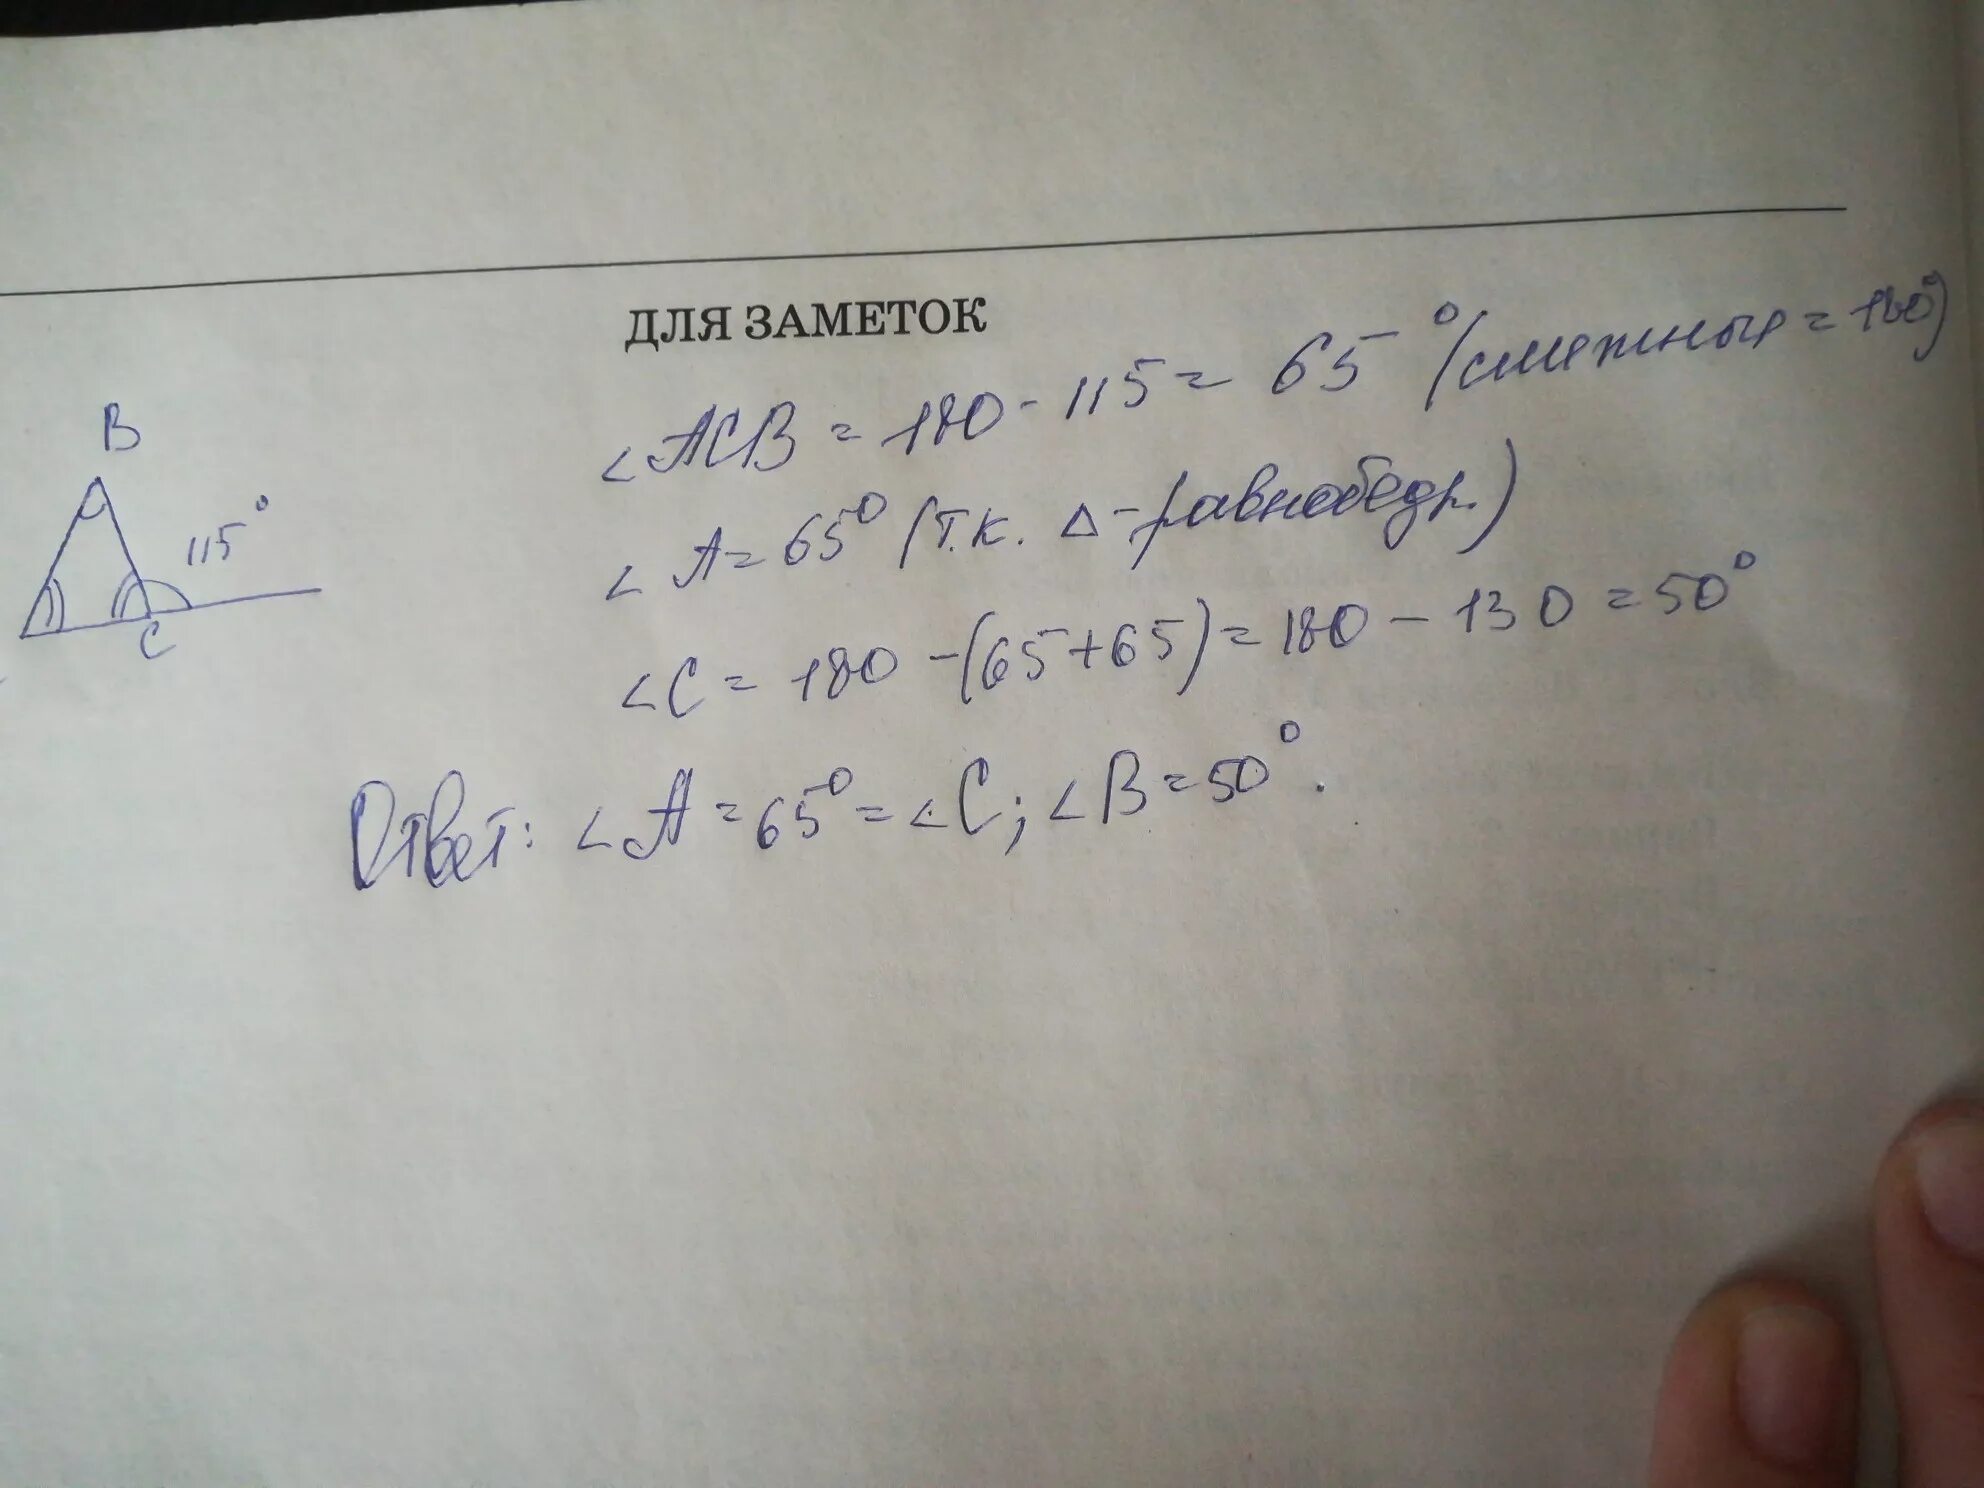 ДЛЯ ЗАМЕТОК
B
115°
C
∠ACB = 180 - 115 = 65° (смежные = 180°)
∠A = 65° (т.к. Δ - равнобедр.)
∠C = 180 - (65 + 65) = 180 - 130 = 50°
Ответ: ∠A = 65° = ∠C; ∠B = 50°.